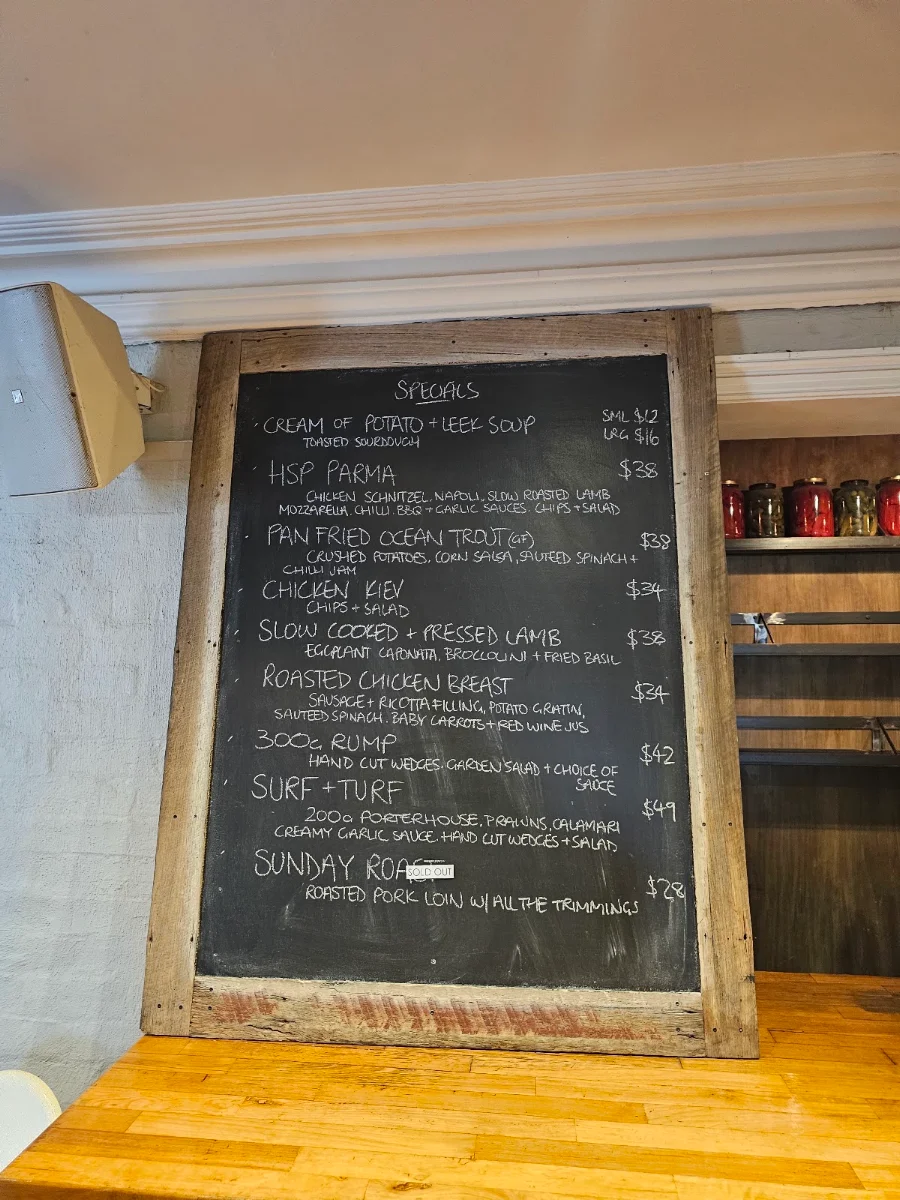 SPECIALS
CREAM OF POTATO + LEEK SOUP SML $12
TOASTED SOURDOUGH LRG $16
HSP PARMA $38
CHICKEN SCHNITZEL. NAPOLI. SLOW ROASTED LAMB
MOZZARELLA. CHILLI. BBQ + GARLIC SAUCES. CHIPS + SALAD
PAN FRIED OCEAN TROUT (GF) $38
CRUSHED POTATOES. CORN SALSA, SAUTEED SPINACH +
CHILLI JAM
CHICKEN KIEV $34
CHIPS + SALAD
SLOW COOKED + PRESSED LAMB $38
EGGPLANT CAPONATA, BROCCOLINI + FRIED BASIL
ROASTED CHICKEN BREAST $34
SAUSAGE + RICOTTA FILLING, POTATO GRATIN,
SAUTEED SPINACH. BABY CARROTS + RED WINE JUS
300G RUMP $42
HAND CUT WEDGES. GARDEN SALAD + CHOICE OF
SAUCE
SURF + TURF $49
200G PORTERHOUSE, PRAWNS, CALAMARI
CREAMY GARLIC SAUCE. HAND CUT WEDGES + SALAD
SUNDAY ROAST SOLD OUT $28
ROASTED PORK LOIN W/ ALL THE TRIMMINGS